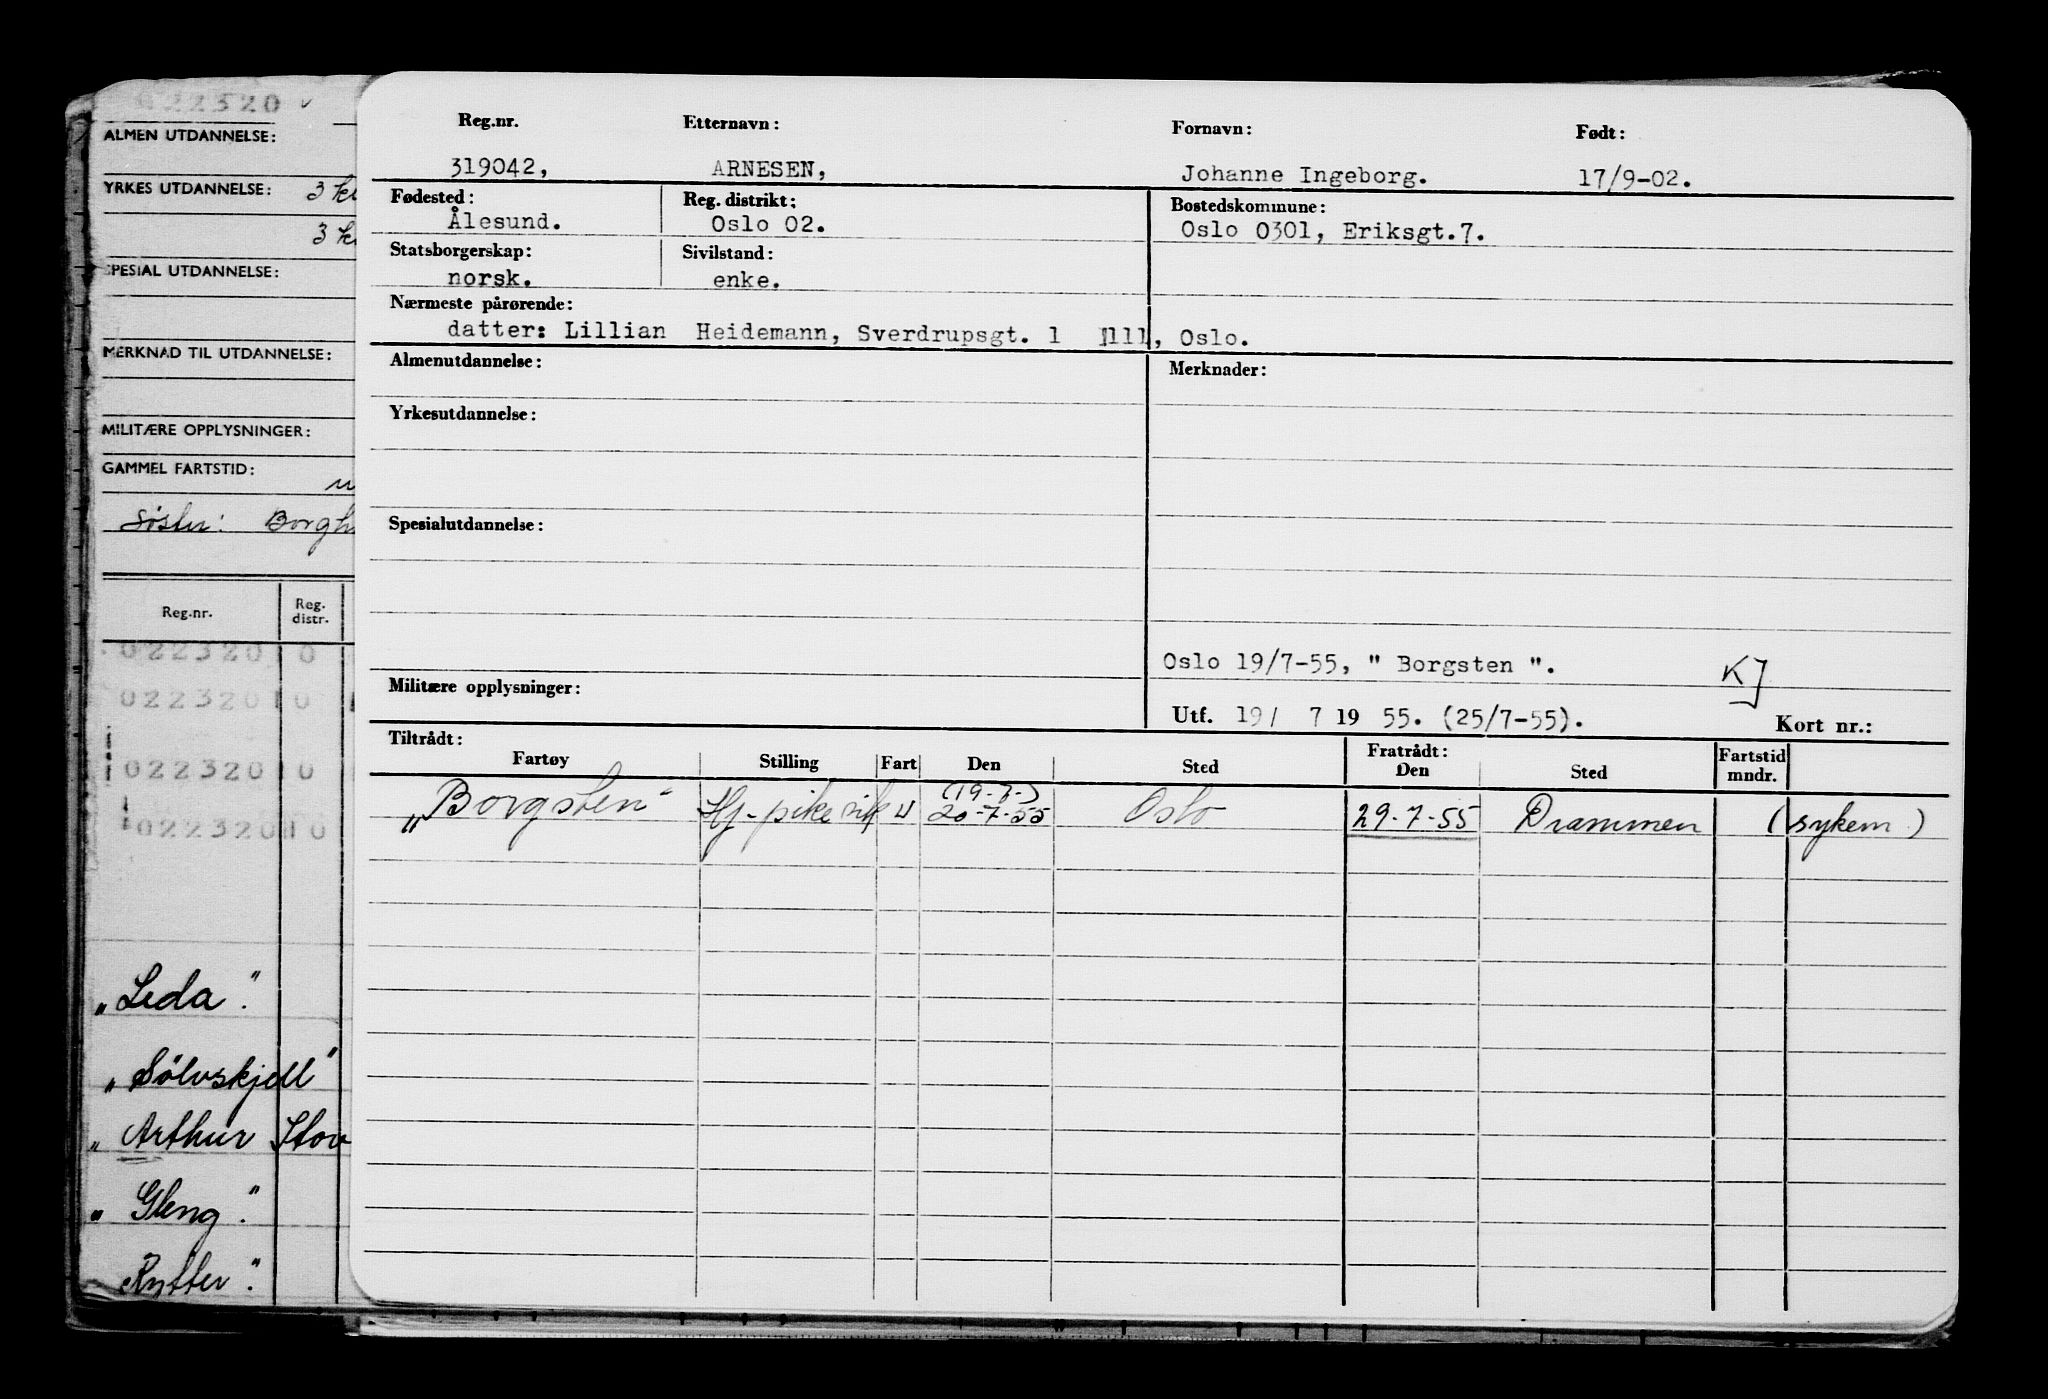 022320
ALMEN UTDANNELSE:
YRKES UTDANNELSE: 3 kl
3 kl
SPESIAL UTDANNELSE:
MERKNAD TIL UTDANNELSE:
MILITÆRE OPPLYSNINGER:
GAMMEL FARTSTID:
Søster: Borgh
Reg.nr. Reg. distr.
022320 0
022320 0
022320 0
022320 0
"Leda".
"Sölvskjell"
"Arthur Stov
"Gleng".
"Rytter".
Reg.nr. Etternavn: Fornavn: Født:
319042, ARNESEN, Johanne Ingeborg. 17/9-02.
Fødested: Reg. distrikt: Bostedskommune:
Ålesund. Oslo 02. Oslo 0301, Eriksgt.7.
Statsborgerskap: Sivilstand:
norsk. enke.
Nærmeste pårørende:
datter: Lillian Heidemann, Sverdrupsgt. 1 111, Oslo.
Almenutdannelse: Merknader:
Yrkesutdannelse:
Spesialutdannelse:
Oslo 19/7-55, " Borgsten ". KJ
Militære opplysninger:
Utf. 19/ 7 19 55. (25/7-55). Kort nr.:
Tiltrådt: Fratrådt: Fartstid
Fartøy Stilling Fart Den Sted Den Sted mndr.
(19-7-)
"Borgsten" Hj-pike u 20-7-55 Oslo 29-7-55 Drammen (sykem)